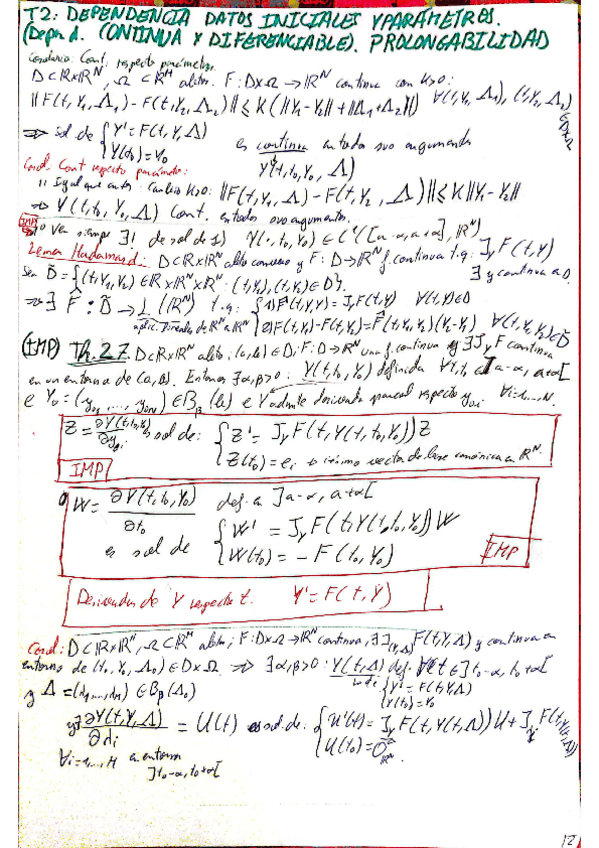 T2: DEPENDENCIA DATOS INICIALES Y PARÁMETROS.
(Depn. d. CONTINUA Y DIFERENCIABLE). PROLONGABILIDAD
Cont. respecto parámetros.
D⊂R×R^N, Ω⊂R^M abiertos. F: D×Ω → R^N continua con K>0:
||F(t,Y₁,Δ₁) - F(t,Y₂,Δ₂)|| ≤ K(||Y₁-Y₂|| + ||Δ₁-Δ₂||) ∀(t,Y₁,Δ₁), (t,Y₂,Δ₂) ∈ D×Ω
⇒ sol de { Y' = F(t,Y,Δ) es continua en todos sus argumentos
Y(t₀) = Y₀ Y(t,t₀,Y₀,Δ)
Corol. Cont respecto parámetro:
Igual que antes. Cambio K>0: ||F(t,Y₁,Δ) - F(t,Y₂,Δ)|| ≤ K||Y₁-Y₂||
⇒ Y(t,t₀,Y₀,Δ) Cont. en todos sus argumentos.
IMP
siempre ∃! de sol de 1) Y(·,t₀,Y₀) ∈ C¹([a-α,a+α],R^N)
Lema Hadamard: D⊂R×R^N abto convexo y F: D→R^N f. continua t.q. ∃ J_Y F(t,Y) y continua en D.
Sea D̃ = {(t,Y₁,Y₂) ∈ R×R^N×R^N : (t,Y₁),(t,Y₂) ∈ D}.
⇒ ∃ F̂: D̃ → L(R^N) t.q. { 1) F̂(t,Y,Y) = J_Y F(t,Y) ∀(t,Y)∈D
aplic. lineales de R^N en R^N 2) F(t,Y₂)-F(t,Y₁) = F̂(t,Y₁,Y₂)(Y₂-Y₁) ∀(t,Y₁,Y₂)∈D̃
(IMP) Th. 2.7. D⊂R×R^N abto; (a,b)∈D; F: D→R^N una f. continua y ∃ J_Y F continua
en un entorno de (a,b). Entonces ∃α,β>0: Y(t,t₀,Y₀) definida ∀t,t₀ ∈ ]a-α, a+α[
e Y₀ = (y₀₁,...,y₀N) ∈ B_β(b) e Y admite derivada parcial respecto y₀i. ∀i=1,...,N.
Z = ∂Y(t,t₀,Y₀)/∂y₀i es sol de: { Z' = J_Y F(t,Y(t,t₀,Y₀))Z
Z(t₀) = e_i → i-ésimo vector de base canónica en R^N.
IMP
W = ∂Y(t,t₀,Y₀)/∂t₀ def. en ]a-α, a+α[
es sol de { W' = J_Y F(t,Y(t,t₀,Y₀))W
W(t₀) = -F(t₀,Y₀)
IMP
Derivada de Y respecto t. Y' = F(t,Y)
Corol: D⊂R×R^N, Ω⊂R^M abto; F: D×Ω→R^N continua, ∃ J_(Y,Δ) F(t,Y,Δ) y continua en
entorno de (t₀,Y₀,Δ₀) ∈ D×Ω ⇒ ∃α,β>0: Y(t,Δ) def. ∀t∈]t₀-α, t₀+α[
y Δ = (λ₁,...,λ_M) ∈ B_β(Δ₀) sol de { Y' = F(t,Y,Δ)
Y(t₀) = Y₀
y ∃ ∂Y(t,Δ)/∂λi = U(t) es sol de: { U'(t) = J_Y F(t,Y(t,Δ))U + J_λi F(t,Y(t,Δ))
U(t₀) = 0_R^N
∀i=1,...,M en entorno
]t₀-α, t₀+α[
12